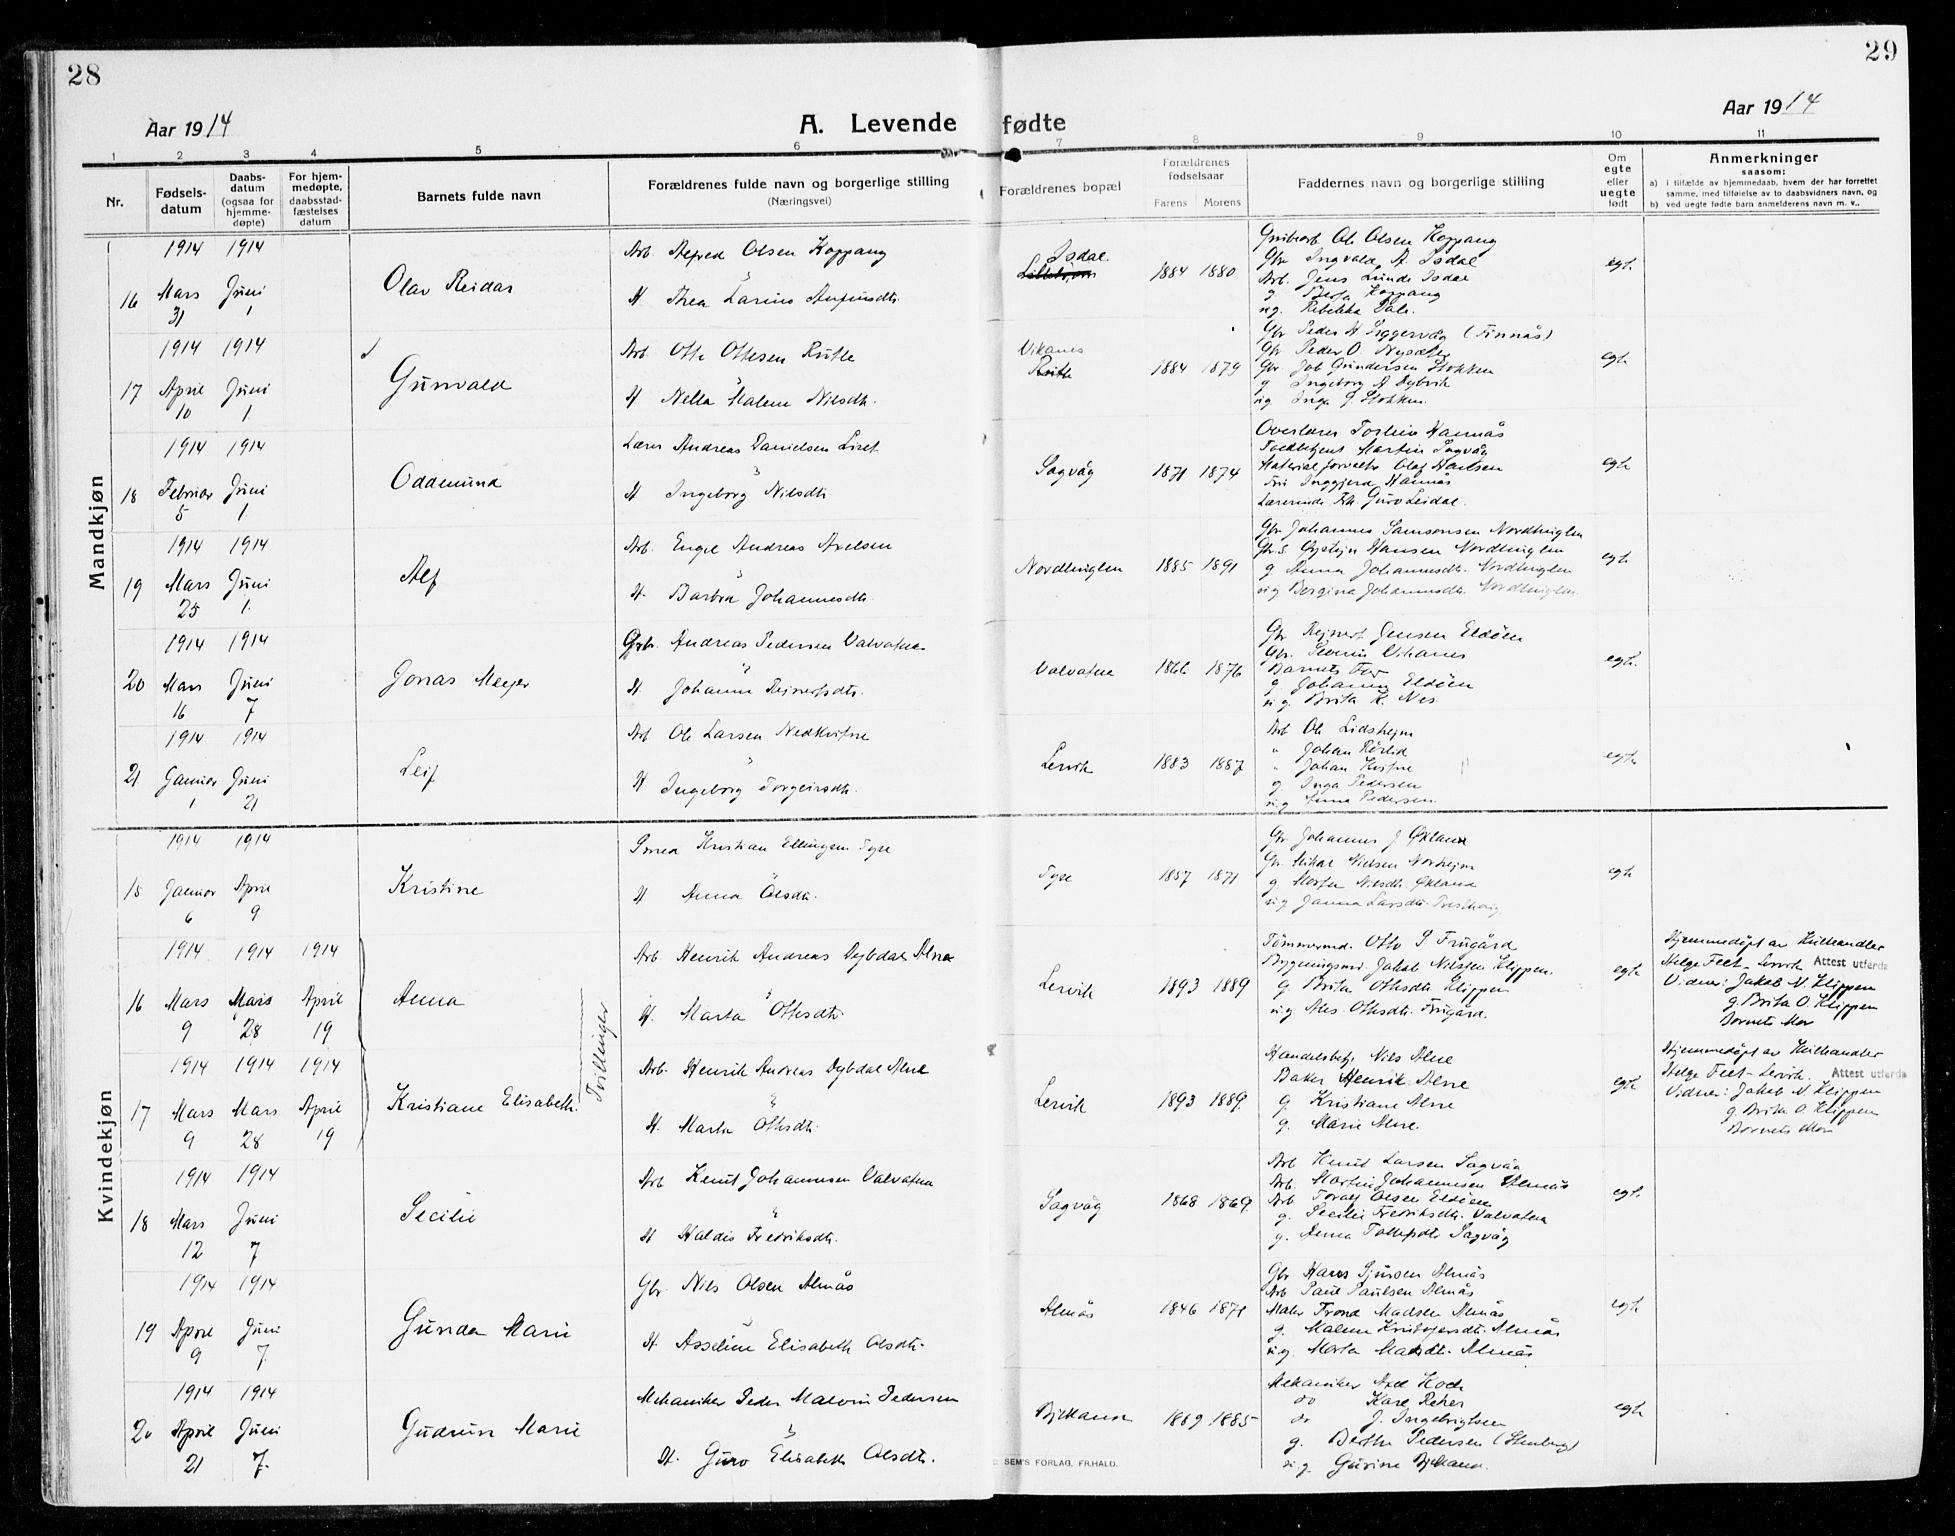 28
29
Aar 1914
A. Levende fødte
Aar 1914
1 2 3 4 5 6 7 8 9 10 11
Nr.
Fødselsdatum
Daabsdatum (ogsaa for hjemmedøpte)
For hjemmedøpte, daabsstadfæstelses datum
Barnets fulde navn
Forældrenes fulde navn og borgerlige stilling (Næringsvei)
Forældrenes bopæl
Forældrenes fødselsaar
Farens Morens
Faddernes navn og borgerlige stilling
Om egte eller uegte født
Anmerkninger saasom:
a) i tilfælde av hjemmedaab, hvem der har forrettet samme, med tilføielse av to daabsvidners navn, og
b) ved uegte fødte barn anmelderens navn m. v..
Mandkjøn
16 1914 Mars 31 1914 Juni 1
Olav Reidar
Arb. Alfred Olsen Koppang
H Thea Larine
Isdal.
1884 1880
Ole Olsen Koppang
Gbr Ingvald A. Isdal
Arb. Jens Lunde Isdal
g Koppang
ug. Rebekka Dale
egt.
17 1914 April 10 1914 Juni 1
Gunvald
Arb. Otto Ottesen Rutle
H Nella Malene Nilsdtr.
Vikanes
1884 1879
Gbr Peder H Siggervåg (Finnås)
Gbr Peder O.
Gbr Job Gundersen Stokken
g Ingeborg A Dybvik
ug Inga G Stokken.
egt
18 1914 Februar 5 1914 Juni 1
Oddmund
Lærer Andreas Danielsen Liset
H Ingeborg Nilsdtr
Sagvåg
1871 1874
Overlærer Torleiv Hannås
Toldbetjent Martin Sagvåg
Materialforvalter Olaf Hansen
Fru Inggjerd Hannås
Lærerinde Frk Guro Leidal.
egt
19 1914 Mars 25 1914 Juni 1.
Alf
Arb. Engel Andreas Axelsen
H. Barbra Johannesdtr.
Nordhuglen
1885 1891
Gbr Johannes Samsonsen Nordhuglen
Gbr.s. Øystein Hansen Nordhuglen
g Anna Johannesdtr. Nordhuglen
ug Bergina Johannesdtr. Nordhuglen.
egt
20 1914 Mars 16 1914 Juni 7
Jonas Meyer
Gbr. Andreas Pedersen Valvatne
H Johanne Rejnertsdtr.
Valvatne
1866 1876
Gbr Rejnert Jensen Eldøen
Gbr. Severin Vikanes
Barnets Far
g Johanne Eldøen
ug. Brita K. Nes
egt.
21 1914 Januar 1 1914 Juni 21
Leif
Arb Ole Larsen Nedkvitne
H Ingeborg Torgeirsdtr.
Lervik
1883 1887
Arb Ole Lidshejm
" Johan Rørlid
" Johan Kvitne
g. Inga Pedersen
ug Anna Pedersen.
egt
Kvindekjøn
15 1914 Januar 6 1914 April 9
Kristine
Smed Kristian Ellingsen Tyse
H Anna Olsdtr.
Tyse
1857 1871
Gbr Johannes J Økland
Gbr. Mikal Nielsen Norhejm
g Marta Nilsdtr. Økland
ug Janna Larsdtr.
egt
16 1914 Mars 9 1914 Mars 28 1914 April 19
Anna
Arb. Henrik Andreas Dybdal Alne
H. Marta Ottesdtr
Lervik
1893 1889
Tømmermd. Otto S Frugård
Bygningsmd. Jakob Nilsen Klippen.
g. Brita Ottesdtr Klippen
ug Ottesdtr. Frugård.
egt
Hjemmedøpt av Kulhandler
Helge Feet - Lervik Attest utferda
Vidner: Jakob N Klippen
g Brita O. Klippen
Barnets Mor
Tvillinger
17 1914 Mars 9 1914 Mars 28 1914 April 19
Kristiane Elisabeth.
Arb. Henrik Andreas Dybdal Alne
H. Marta Ottesdtr.
Lervik
1893 1889.
Handelsbetj Nils Alne
Baker Henrik Alne
g. Kristiane Alne
g. Marie Alne.
egt
Hjemmedøpt av Kulhandler
Helge Feet - Lervik. Attest utferda
Vidner: Jakob N Klippen
g Brita O. Klippen
Barnets Mor
18 1914 Mars 12 1914 Juni 7
Secilie
Arb Knut Johannesen Valvatne
H Haldis Fredriksdtr.
Sagvåg
1868 1869.
Arb Knut Larsen Sagvåg
Arb. Martin Johannesen Almås
Arb Toralf Olsen Eldøen
g. Secilie Fredriksdtr. Valvatne
g. Anna Sagvåg
egt.
19 1914 April 9 1914 Juni 7.
Gunda Marie
Gbr. Nils Olsen Almås
H. Asseline Elisabeth Olsdtr.
Almås
1846 1871
Gbr Hans Sjursen Almås
Arb Paul Paulsen Almås
Maler Trond Madsen Almås
g. Malene Almås
ug. Marta Almås
egt
20 1914 April 21 1914 Juni 7.
Gudrun Marie
Mekaniker Peder Malvin Pedersen
H. Guro Elisabeth Olsdtr.
Bjelland
1889 1885
Mekaniker Axel Hoch
do Karl Reher
do J. Ingebrigtsen
g. Berthe Pedersen (Stenberg)
ug. Gurine Bjelland.
egt
SEM'S FORLAG, FR.HALD.